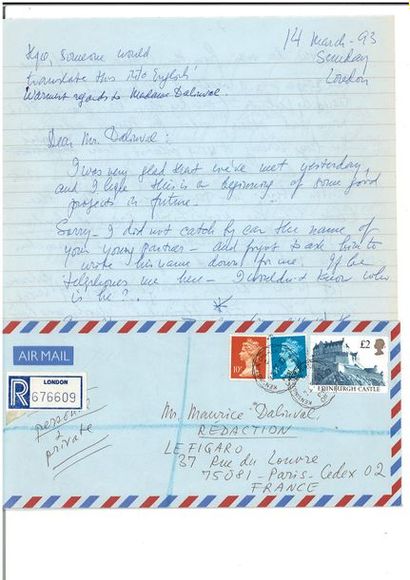 14 March - 93
Sunday
London
Hope, someone would
translate this into English!
Warmest regards to Madame Dalinval.
Dear Mr. Dalinval:
I was very glad that we've met yesterday,
and I hope this is a beginning of some good
projects in future.
Sorry - I did not catch by ear the name of
your young partner - and forgot to ask him to
write his name down for me. If he
telephones me here - I wouldn't know who
is he?..
AIR MAIL
LONDON
R
676609
personal
private
10P
£2
EDINBURGH CASTLE
Mr. Maurice Dalinval
RÉDACTION
LE FIGARO
37 Rue du Louvre
75081 - Paris - Cedex 02
FRANCE